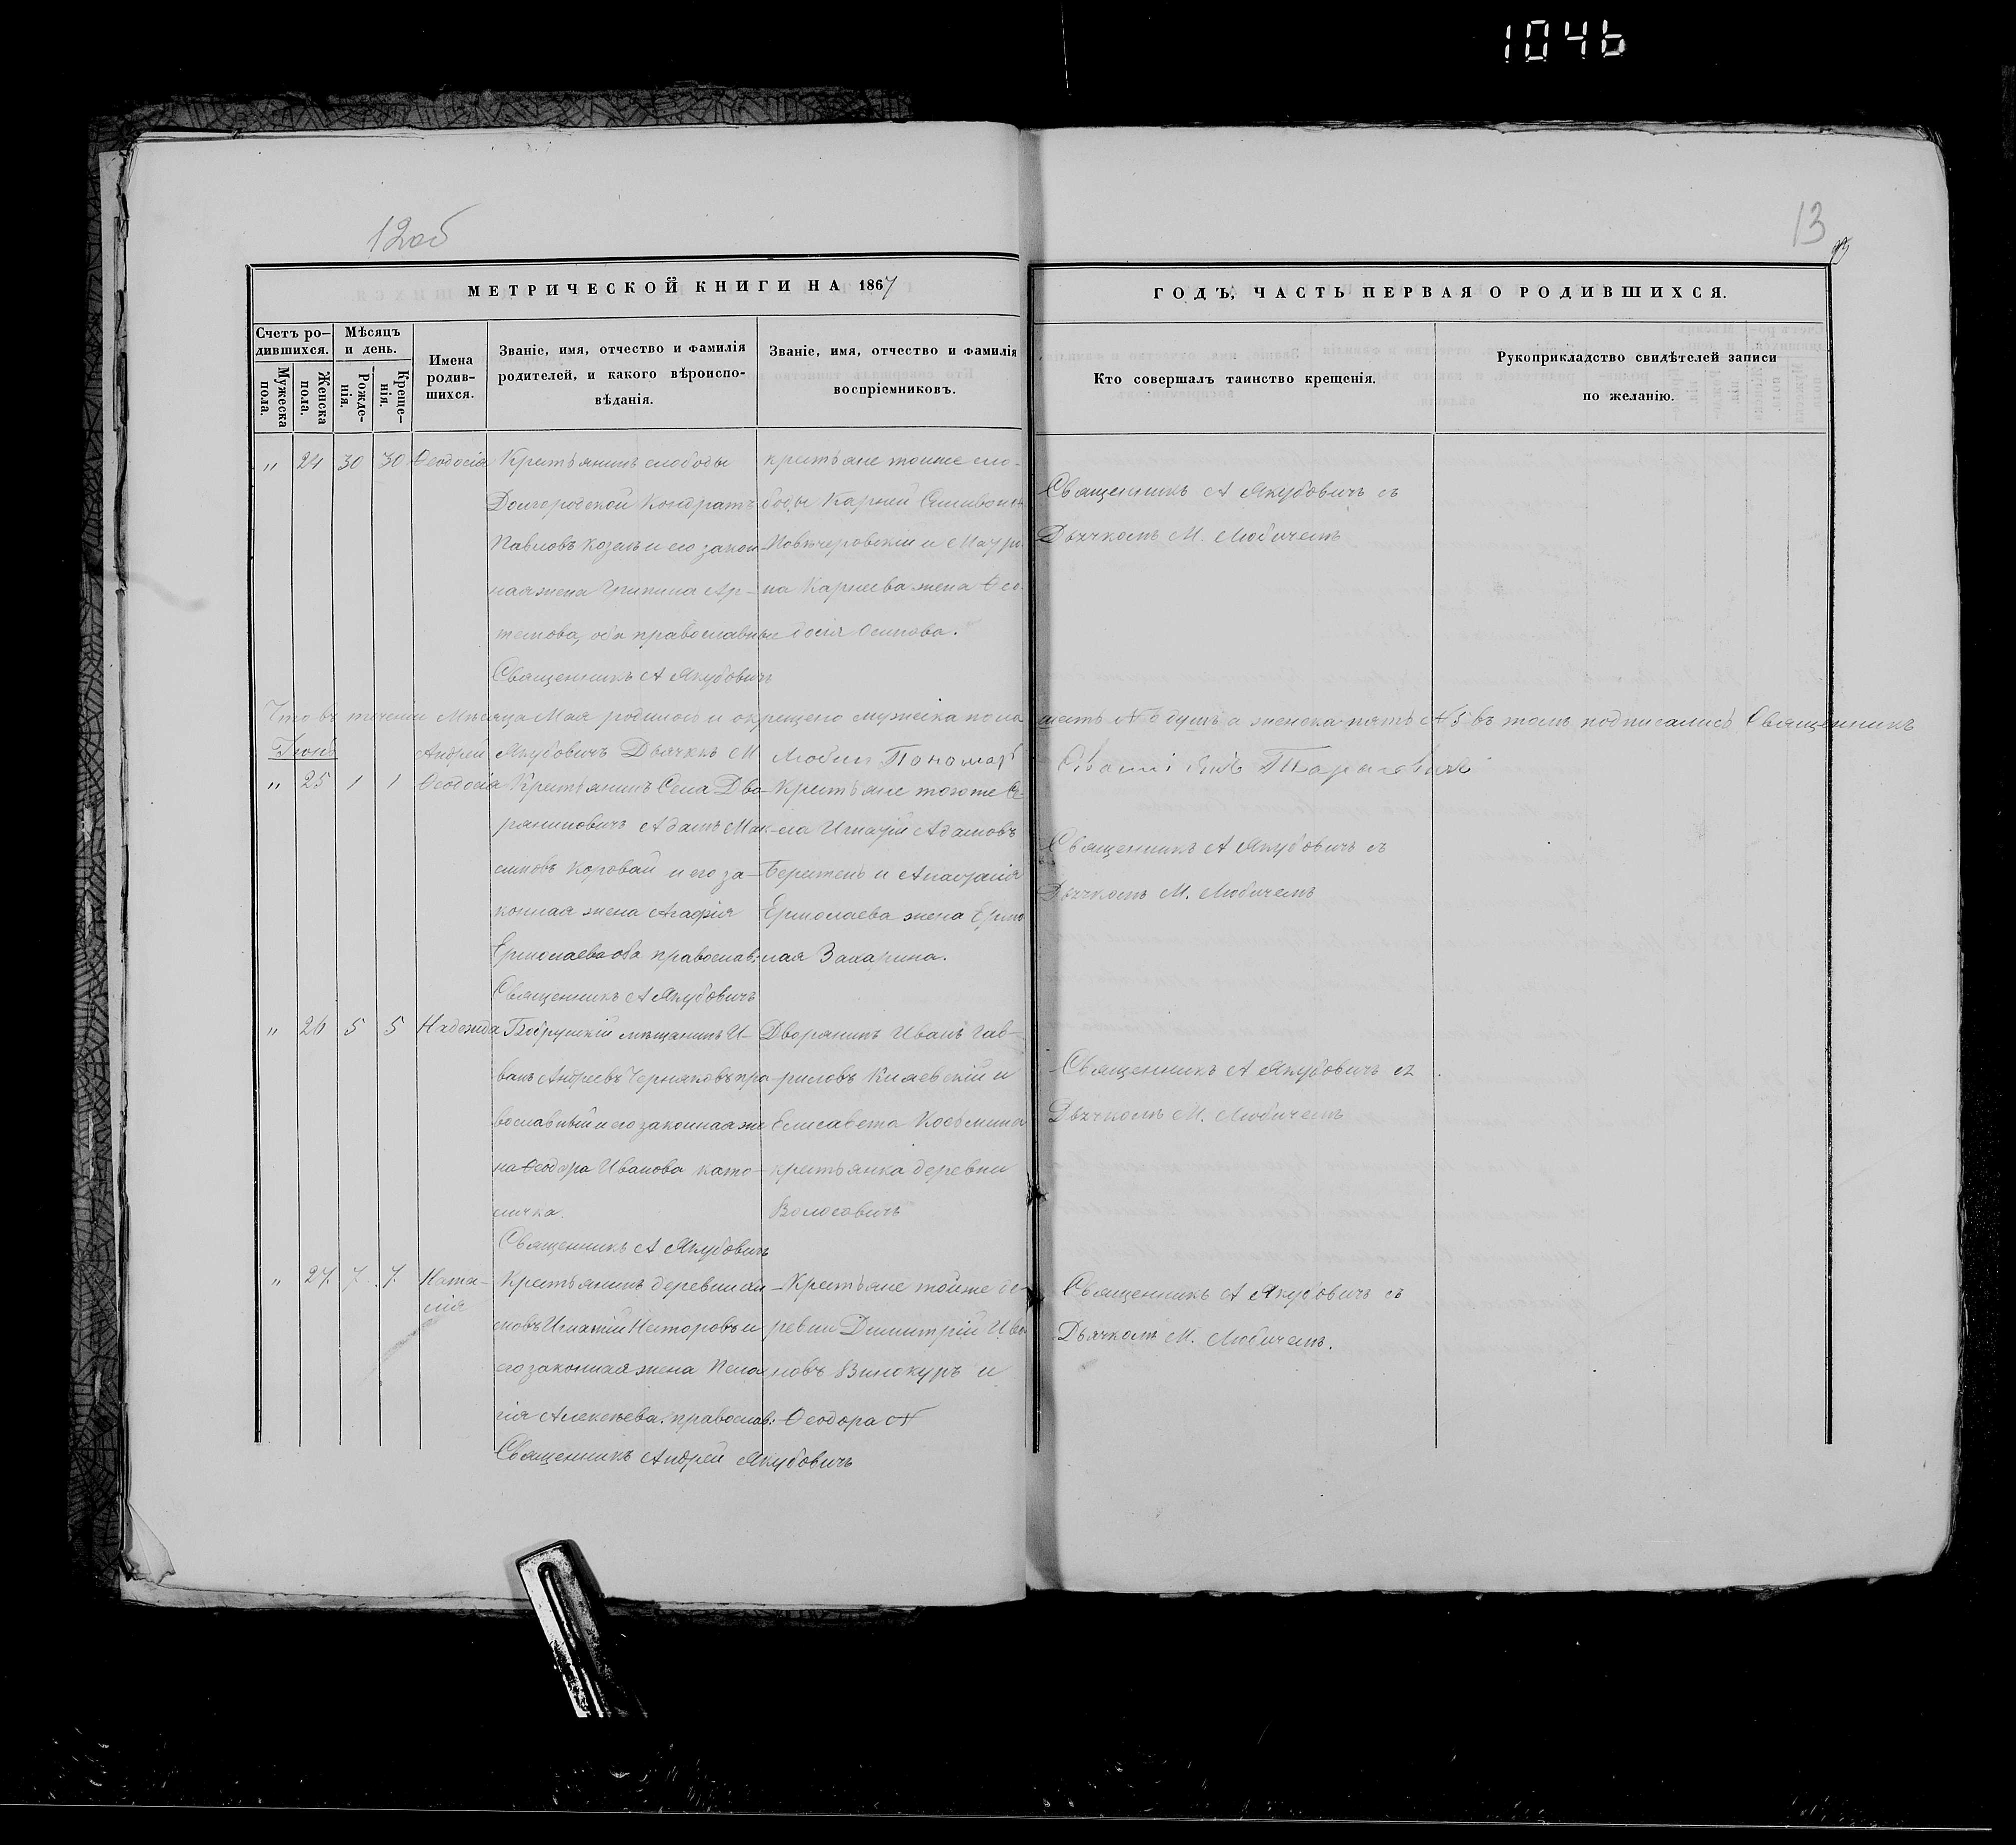 1046
12об
13
МЕТРИЧЕСКОЙ КНИГИ НА 1867
ГОДЪ, ЧАСТЬ ПЕРВАЯ О РОДИВШИХСЯ.
Счетъ ро-
дившихся.
Мужеска
пола.
Женска
пола.
Мѣсяцъ
и день.
Рожде-
нія.
Креще-
нія.
Имена
родив-
шихся.
Званіе, имя, отчество и фамилія
родителей, и какого вѣроиспо-
вѣданія.
Званіе, имя, отчество и фамилія
воспріемниковъ.
Кто совершалъ таинство крещенія.
Рукоприкладство свидѣтелей записи
по желанію.
" 24 30 30 Ѳеодосія
Крестьянинъ слободы
Долгородской Кондратъ
Павловъ Козелъ и его закон
ная жена Ар-
темова, оба православные
Священникъ А Якубовичъ
крестьяне тоиже сло-
боды Карней
и Мауро
на Карнеева жена Ѳео
досія Осипова.
Священникъ А Якубовичъ съ
Дьячкомъ М. Любичемъ
Что въ течении Мѣсяца Мая родилось и окрещено мужеска пола
шесть №6 душъ а женска пять №5 въ томъ подписались Священникъ
Іюнь
Андрей Якубовичъ Дьячкъ М Любич Пономарь
" 25 1 1 Ѳеодосія
Крестьянинъ Села Дво-
раниновичъ Адамъ Мак-
симовъ Коровай и его за-
конная жена Агафія
Ермолаева оба православ:
Священникъ А Якубовичъ
Крестьяне тогоже Се-
ла Игнатій Адамовъ
и Анастасія
Ермолаева жена Ермо
лая Захарина.
Священникъ А Якубовичъ съ
Дьячкомъ М. Любичемъ
" 26 5 5 Надежда
Бобруйскій мѣщанинъ И-
ванъ Андреевъ Черняковъ пра
вославный и его законная же
на Ѳеодора Иванова като-
личка.
Священникъ А Якубовичъ
Дворянинъ Иванъ Гав-
риловъ Кияевскій и
Елисавета Косьмина
крестьянка деревни
Волосовичъ
Священникъ А Якубовичъ съ
Дьячкомъ М. Любичемъ
" 27. 7. 7. Ната-
лія
Крестьянинъ деревни
Игнатій Несторовъ и
его законная жена Пела
гія Алексѣева. православ:
Священникъ Андрей Якубовичъ
Крестьяне тойже де-
ревни Димитрій Ива
новъ Винокуръ и
Ѳеодора
Священникъ А Якубовичъ съ
Дьячкомъ М. Любичемъ.